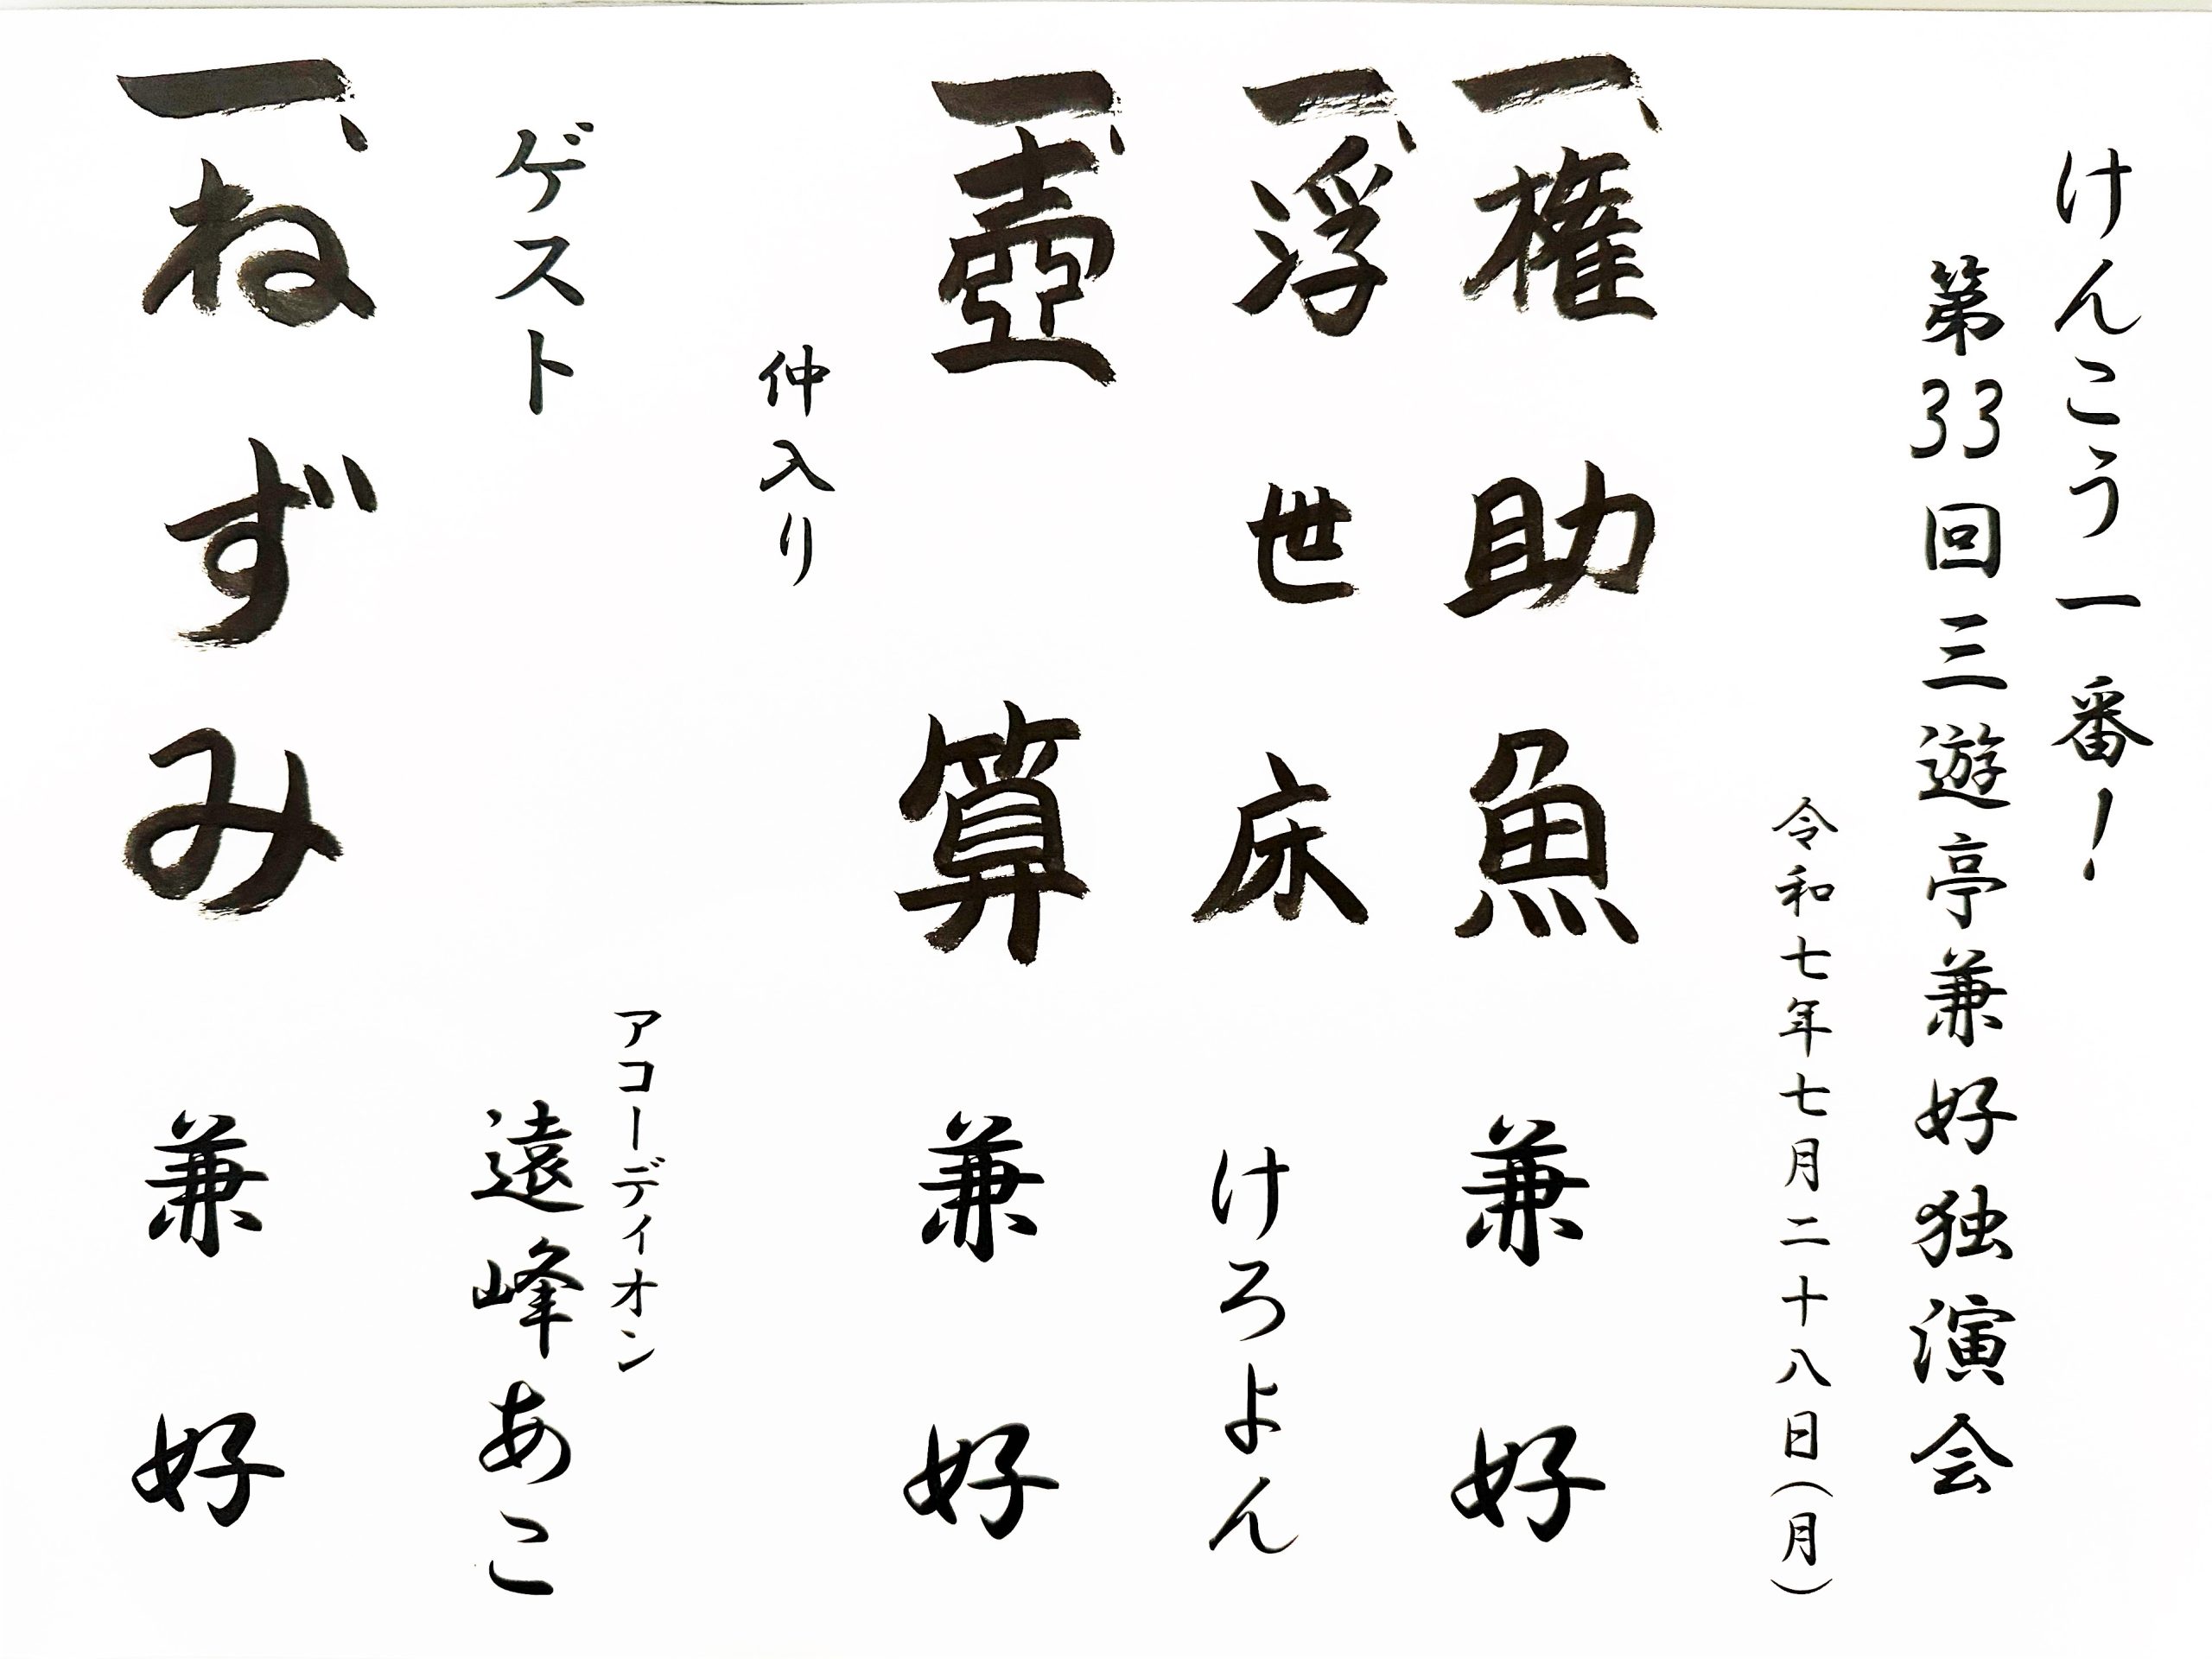 けんこう一番！
第33回三遊亭兼好独演会
令和七年七月二十八日(月)
一、権助魚 兼好
一、浮世床 けろよん
一、壺算 兼好
仲入り
ゲスト アコーディオン 遠峰あこ
一、ねずみ 兼好